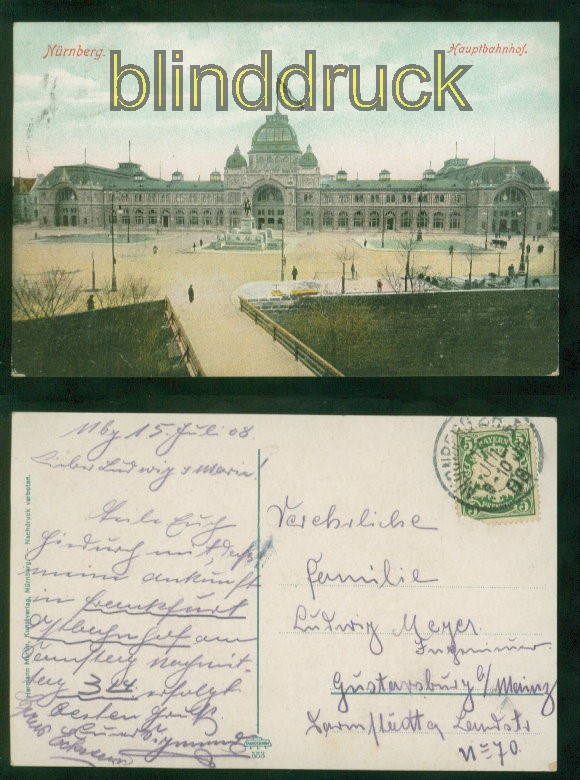 Nürnberg.
Hauptbahnhof.
blinddruck
Nbg 15. Juli 08
Lieber Ludwig & Marie!
Teile Euch
hiedurch mit, daß
meine Ankunft
in Frankfurt
Ostbahnhof am
Samstag Nachmit-
tag 3 24 erfolgt
Besten Gruß
Verehrliche
Familie
Ludwig Meyer
Ingenieur
Gustavsburg b/Mainz
Darmstädter Landstr
No 70.
BAYERN
5
5
Hermann Martin, Kunstverlag, Nürnberg. Nachdruck verboten.
553